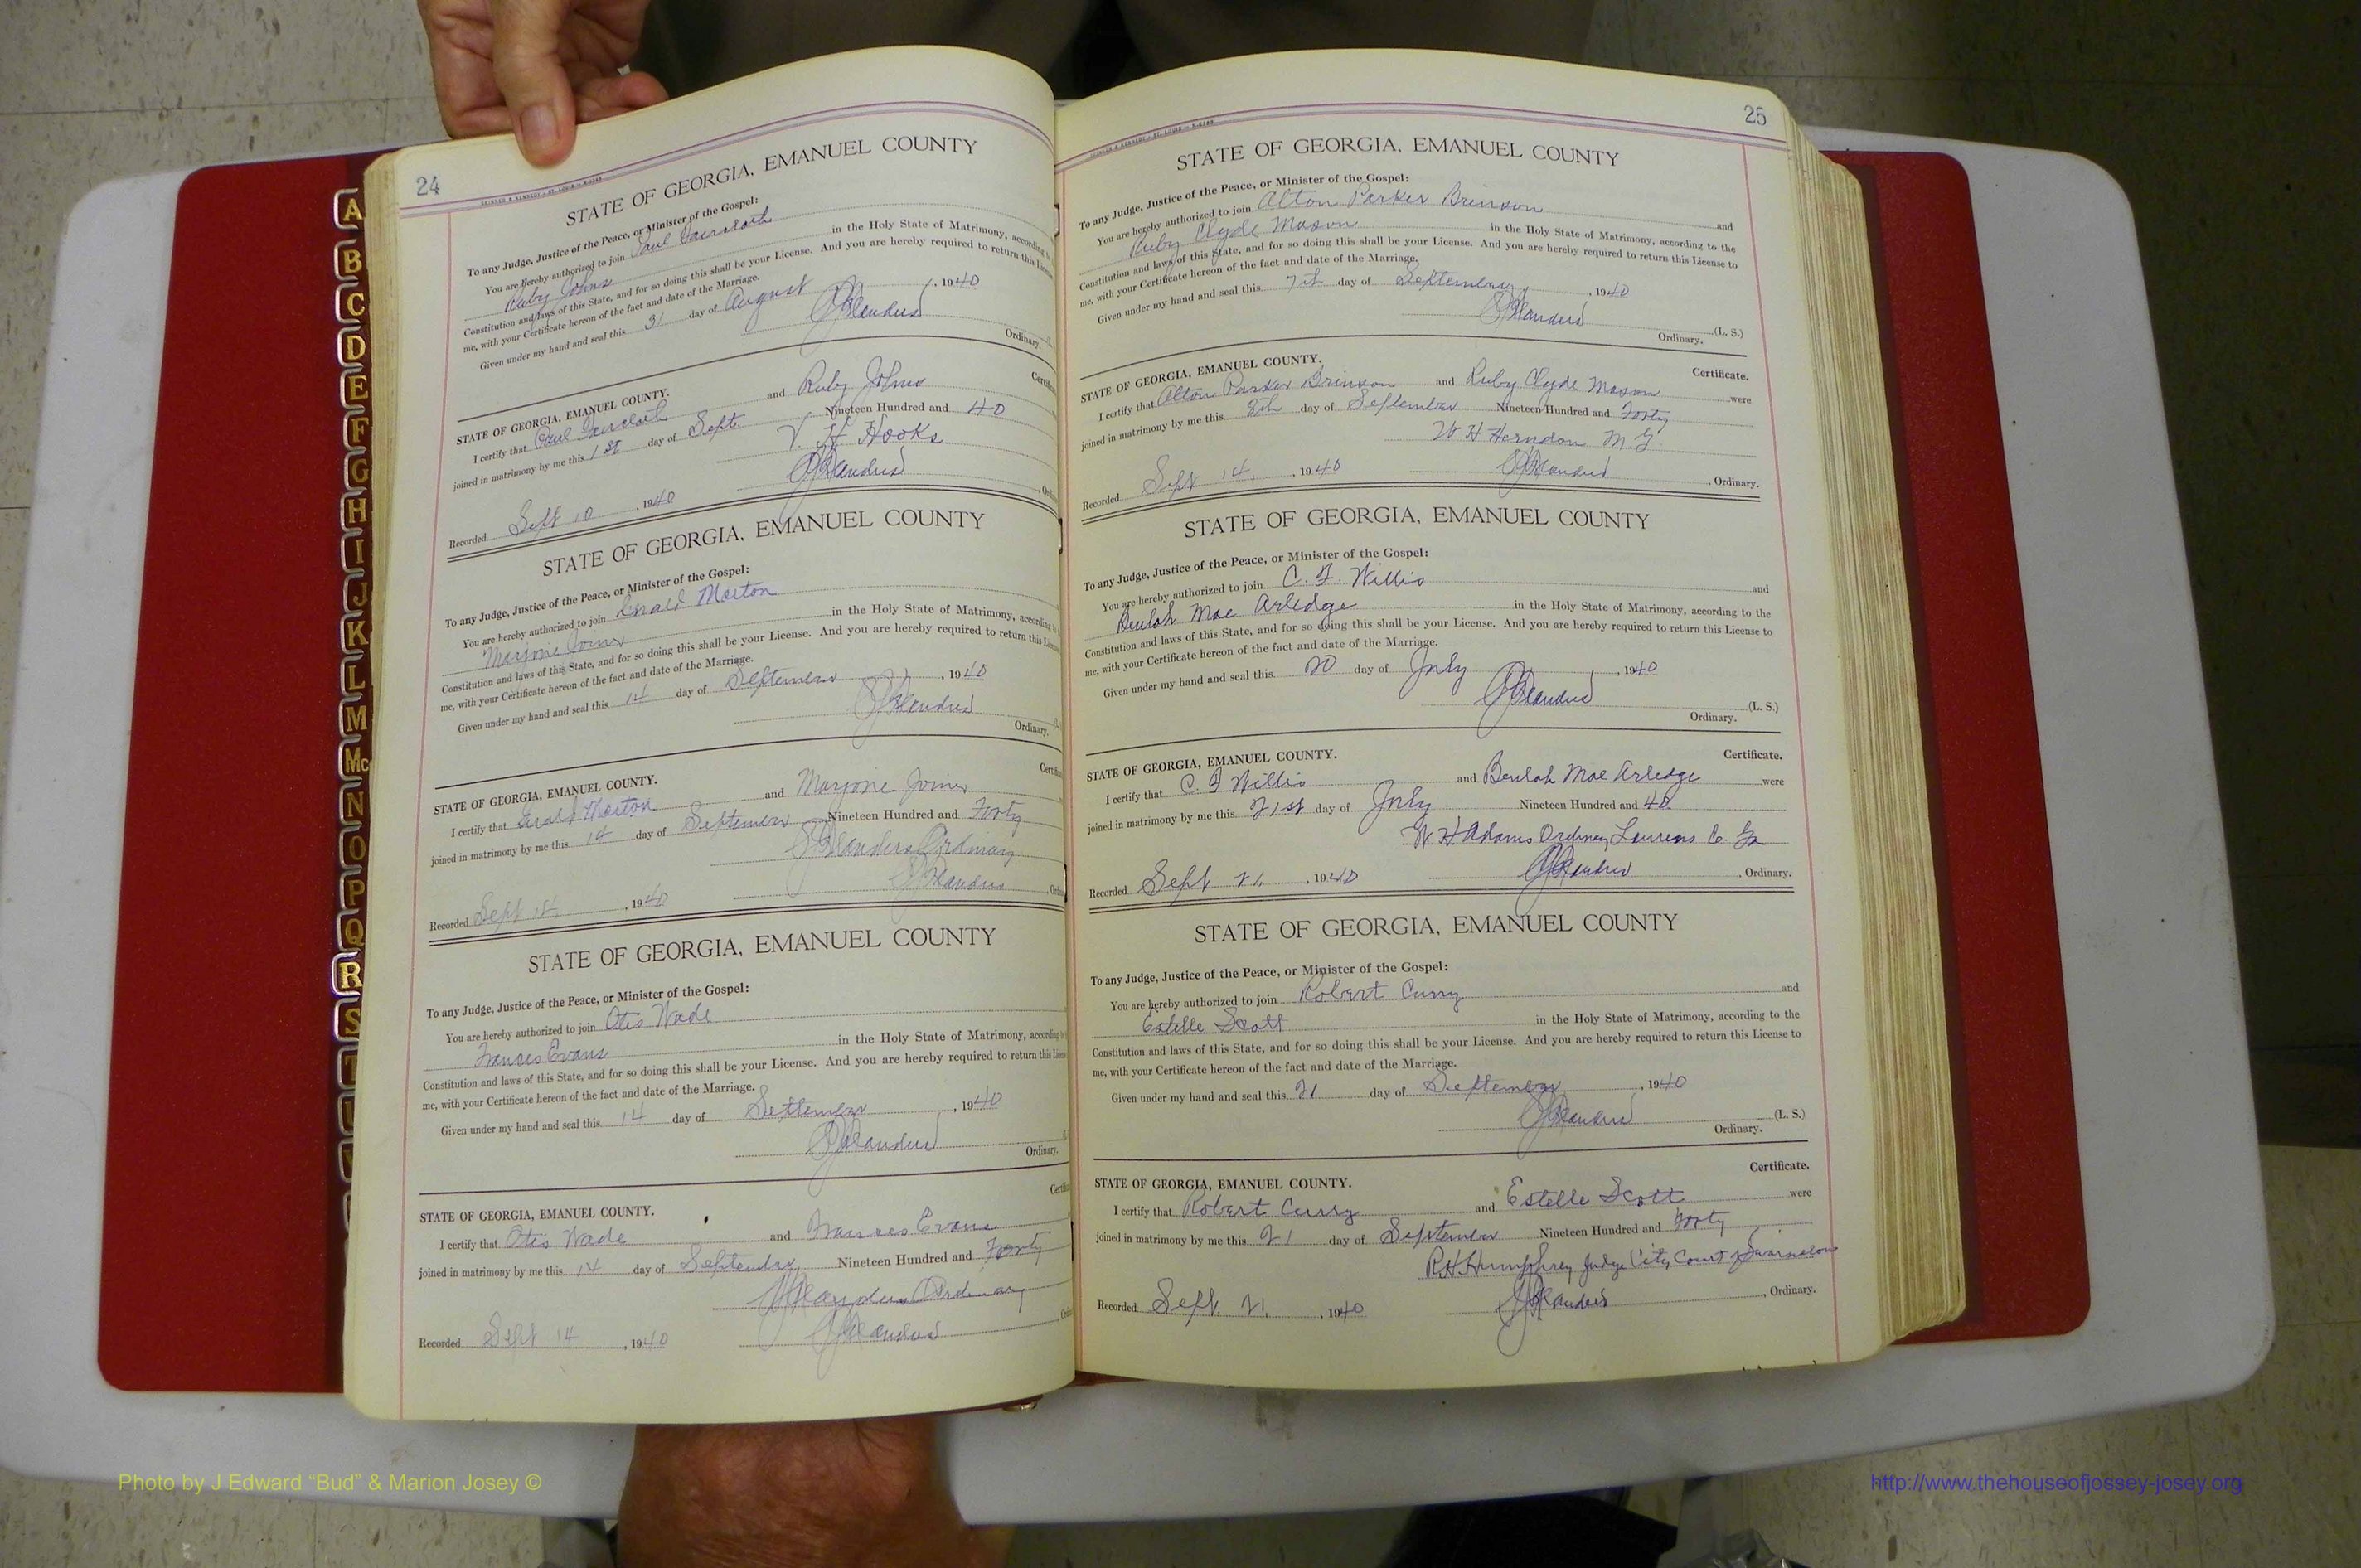 24
STATE OF GEORGIA, EMANUEL COUNTY
To any Judge, Justice of the Peace, or Minister of the Gospel:
You are hereby authorized to join Paul Faircloth
Ruby Johns in the Holy State of Matrimony, according
Constitution and laws of this State, and for so doing this shall be your License. And you are hereby required to return this License
me, with your Certificate hereon of the fact and date of the Marriage.
Given under my hand and seal this 31 day of August, 1940
Ordinary.
Certifi
STATE OF GEORGIA, EMANUEL COUNTY.
I certify that Paul Faircloth and Ruby Johns
joined in matrimony by me this 1st day of Sept. Nineteen Hundred and 40
V. H Hooks
Recorded Sept 10, 1940
STATE OF GEORGIA, EMANUEL COUNTY
To any Judge, Justice of the Peace, or Minister of the Gospel:
You are hereby authorized to join Gerald Morton
Marjorie Joiner in the Holy State of Matrimony, according
Constitution and laws of this State, and for so doing this shall be your License. And you are hereby required to return this License
me, with your Certificate hereon of the fact and date of the Marriage.
Given under my hand and seal this 14 day of September, 1940
Ordinary.
Certifi
STATE OF GEORGIA, EMANUEL COUNTY.
I certify that Gerald Morton and Marjorie Joiner
joined in matrimony by me this 14 day of September Nineteen Hundred and Forty
Ordinary
Recorded Sept 14, 1940
STATE OF GEORGIA, EMANUEL COUNTY
To any Judge, Justice of the Peace, or Minister of the Gospel:
You are hereby authorized to join Otis Wade
Frances Evans in the Holy State of Matrimony, according
Constitution and laws of this State, and for so doing this shall be your License. And you are hereby required to return this License
me, with your Certificate hereon of the fact and date of the Marriage.
Given under my hand and seal this 14 day of September, 1940
Ordinary.
Certifi
STATE OF GEORGIA, EMANUEL COUNTY.
I certify that Otis Wade and Frances Evans
joined in matrimony by me this 14 day of September Nineteen Hundred and Forty
Ordinary
Recorded Sept 14, 1940
25
STATE OF GEORGIA, EMANUEL COUNTY
To any Judge, Justice of the Peace, or Minister of the Gospel:
You are hereby authorized to join Alton Parker Brinson and
Ruby Clyde Mason in the Holy State of Matrimony, according to the
Constitution and laws of this State, and for so doing this shall be your License. And you are hereby required to return this License to
me, with your Certificate hereon of the fact and date of the Marriage.
Given under my hand and seal this 7th day of September, 1940
(L. S.)
Ordinary.
Certificate.
STATE OF GEORGIA, EMANUEL COUNTY.
I certify that Alton Parker Brinson and Ruby Clyde Mason were
joined in matrimony by me this 8th day of September Nineteen Hundred and Forty
W H Herndon M. G.
Recorded Sept 14, 1940 , Ordinary.
STATE OF GEORGIA, EMANUEL COUNTY
To any Judge, Justice of the Peace, or Minister of the Gospel:
You are hereby authorized to join C. F. Willis and
Beulah Mae Arledge in the Holy State of Matrimony, according to the
Constitution and laws of this State, and for so doing this shall be your License. And you are hereby required to return this License to
me, with your Certificate hereon of the fact and date of the Marriage.
Given under my hand and seal this 20 day of July, 1940
(L. S.)
Ordinary.
Certificate.
STATE OF GEORGIA, EMANUEL COUNTY.
I certify that C. F Willis and Beulah Mae Arledge were
joined in matrimony by me this 21st day of July Nineteen Hundred and 40
W H Adams Ordinary Laurens Co. Ga
Recorded Sept 21, 1940 , Ordinary.
STATE OF GEORGIA, EMANUEL COUNTY
To any Judge, Justice of the Peace, or Minister of the Gospel:
You are hereby authorized to join Robert Curry and
Estelle Scott in the Holy State of Matrimony, according to the
Constitution and laws of this State, and for so doing this shall be your License. And you are hereby required to return this License to
me, with your Certificate hereon of the fact and date of the Marriage.
Given under my hand and seal this 21 day of September, 1940
(L. S.)
Ordinary.
Certificate.
STATE OF GEORGIA, EMANUEL COUNTY.
I certify that Robert Curry and Estelle Scott were
joined in matrimony by me this 21 day of September Nineteen Hundred and Forty
R H Humphrey Judge City Court of Swainsboro
Recorded Sept. 21, 1940 , Ordinary.
A
B
C
D
E
F
G
H
I
J
K
L
M
Mc
N
O
P
Q
R
S
T
U
Photo by J Edward “Bud” & Marion Josey ©
http://www.thehouseofjossey-josey.org